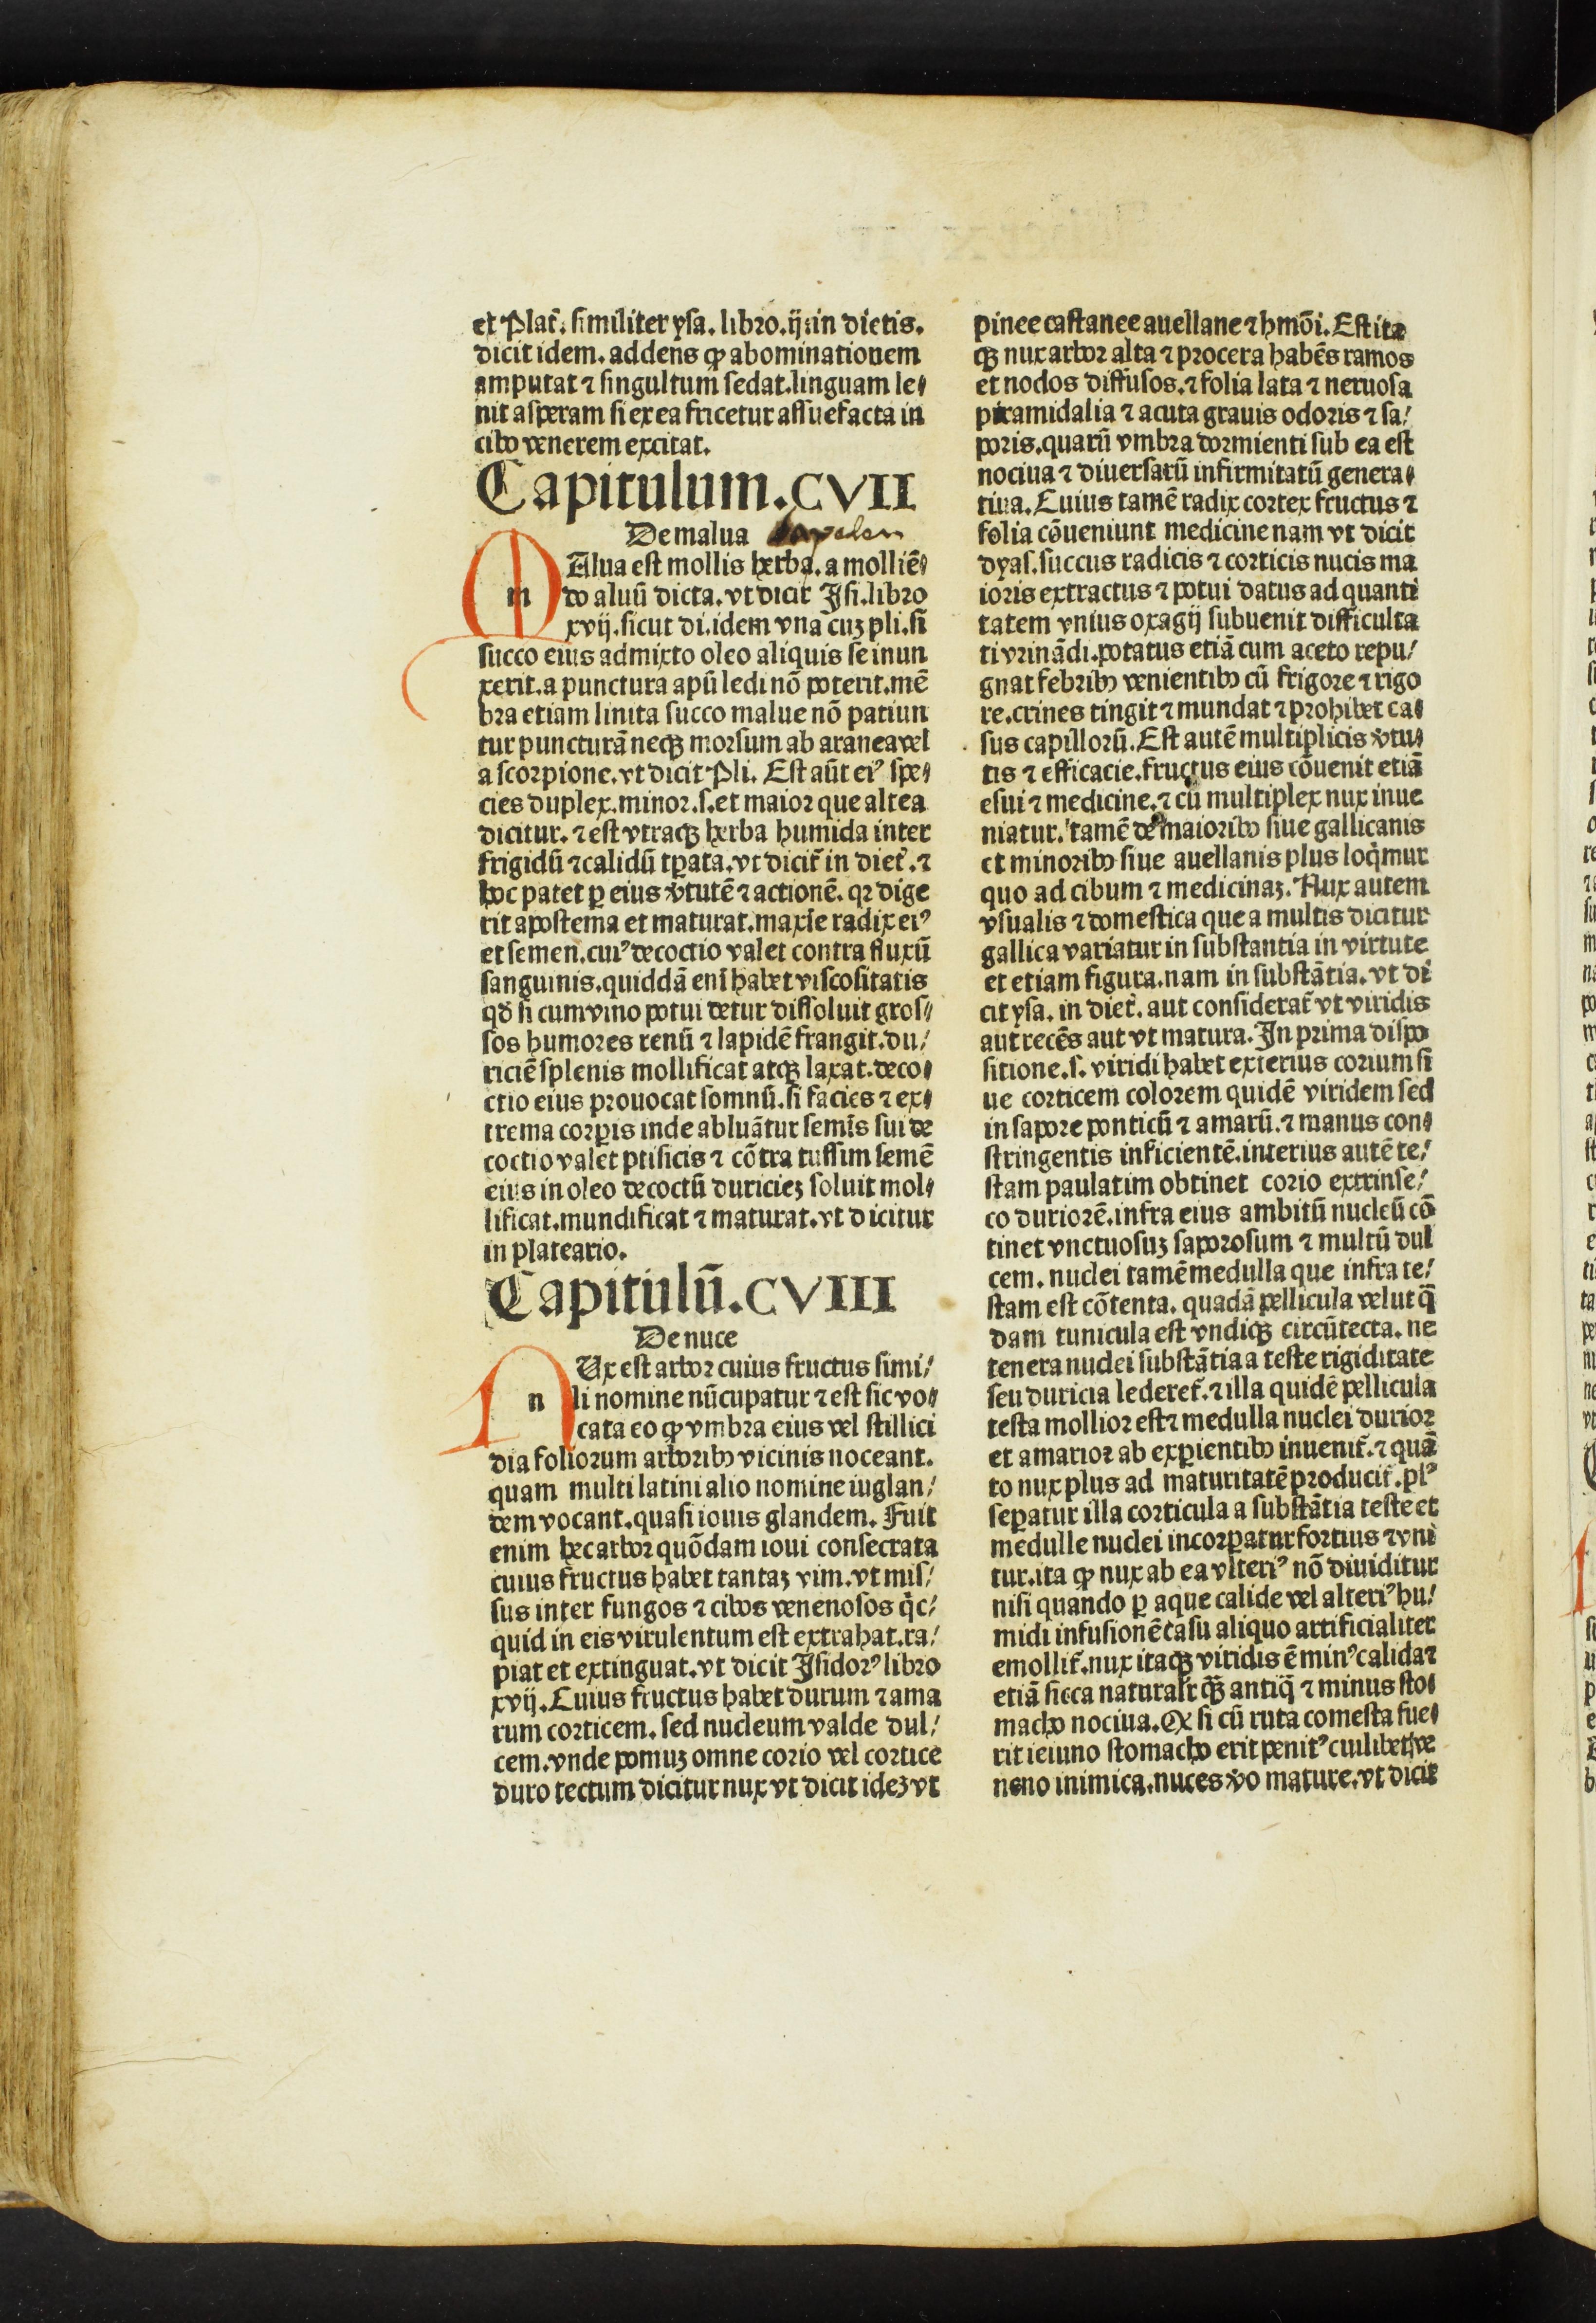 et Plať. similiter ysa. libro. ij. in dietis.
dicit idem. addens ꝙ abominationem
amputat ⁊ singultum sedat. linguam le⸗
nit asperam si ex ea fricetur assuefacta in
cibo venerem excitat.
Capitulum. CVII
De malua
Alua est mollis herba. a molliē⸗
m do aluū dicta. vt dicit Isi. libro
xvij. sicut di. idem vna cuꝫ pli. si
succo eius admixto oleo aliquis se inun
xerit. a punctura apū ledi nō poterit. mē
bra etiam linita succo malue nō patiun
tur puncturā neqꝫ morsum ab aranea vel
a scorpione. vt dicit Pli. Est aūt eiꝰ spe⸗
cies duplex. minor. s. et maior que altea
dicitur. ⁊ est vtraqꝫ herba humida inter
frigidū ⁊ calidū tꝑata. vt dicit̄ in diet̄. ⁊
hoc patet ꝑ eius v̄tutē ⁊ actionē. qꝛ dige
rit apostema et maturat. maxīe radix eiꝰ
et semen. cuiꝰ decoctio valet contra fluxū
sanguinis. quiddā eni habet viscositatis
qđ si cum vino potui detur dissoluit gros⸗
sos humores renū ⁊ lapidē frangit. du⸗
riciē splenis mollificat atqꝫ laxat. deco⸗
ctio eius prouocat somnū. si facies ⁊ ex⸗
trema corꝑis inde abluātur semīs sui de
coctio valet ptisicis ⁊ cōtra tussim semē
eius in oleo decoctū duricieꝫ soluit mol⸗
lificat. mundificat ⁊ maturat. vt dicitur
in plateario.
Capitulū. CVIII
De nuce
Ux est arbor cuius fructus simi⸗
n li nomine nūcupatur ⁊ est sic vo⸗
cata eo ꝙ vmbra eius vel stillici
dia foliorum arboribꝰ vicinis noceant.
quam multi latini alio nomine iuglan⸗
dem vocant. quasi iouis glandem. Fuit
enim hec arbor quōdam ioui consecrata
cuius fructus habet tantaꝫ vim. vt mis⸗
sus inter fungos ⁊ cibos venenosos q̇c⸗
quid in eis virulentum est extrahat. ra⸗
piat et extinguat. vt dicit Isidorꝰ libro
xvij. Cuius fructus habet durum ⁊ ama
rum corticem. sed nucleum valde dul⸗
cem. vnde pomuꝫ omne corio vel cortice
duro tectum dicitur nux vt dicit ideꝫ vt
pinee castanee auellane ⁊ hmōi. Est ita
qꝫ nux arbor alta ⁊ procera habēs ramos
et nodos diffusos. ⁊ folia lata ⁊ neruosa
piramidalia ⁊ acuta grauis odoris ⁊ sa⸗
poris. quarū vmbra dormienti sub ea est
nociua ⁊ diuersarū infirmitatū genera⸗
tiua. Cuius tamē radix cortex fructus ⁊
folia cōueniunt medicine nam vt dicit
dyas. succus radicis ⁊ corticis nucis ma
ioris extractus ⁊ potui datus ad quanti
tatem vnius oxagij subuenit difficulta
ti vrinādi. potatus etiā cum aceto repu⸗
gnat febribꝰ venientibꝰ cū frigore ⁊ rigo
re. crines tingit ⁊ mundat ⁊ prohibet ca⸗
sus capillorū. Est autē multiplicis v̄tu⸗
tis ⁊ efficacie. fructus eius cōuenit etiā
esui ⁊ medicine. ⁊ cū multiplex nux inue
niatur. tamē de maioribꝰ siue gallicanis
et minoribꝰ siue auellanis plus loq̇mur
quo ad cibum ⁊ medicinaꝫ. Nux autem
vsualis ⁊ domestica que a multis dicitur
gallica variatur in substantia in virtute
et etiam figura. nam in substātia. vt di
cit ysa. in diet̄. aut considerat̄ vt viridis
aut recēs aut vt matura. In prima dispo
sitione. s. viridi habet exterius corium si
ue corticem colorem quidē viridem sed
in sapore ponticū ⁊ amarū. ⁊ manus con⸗
stringentis inficientē. interius autē te⸗
stam paulatim obtinet corio extrinse⸗
co duriorē. infra eius ambitū nucleū cō
tinet vnctuosuꝫ saporosum ⁊ multū dul
cem. nuclei tamē medulla que infra te⸗
stam est cōtenta. quadā pellicula velut q̄
dam tunicula est vndiqꝫ circūtecta. ne
tenera nuclei substātia a teste rigiditate
seu duricia lederet̄. ⁊ illa quidē pellicula
testa mollior est ⁊ medulla nuclei durior
et amarior ab exꝑientibꝰ inuenit̄. ⁊ quā
to nux plus ad maturitatē producit̄. plꝰ
seꝑatur illa corticula a substātia teste et
medulle nuclei incorꝑatur fortius ⁊ vni
tur. ita ꝙ nux ab ea vlteriꝰ nō diuiditur
nisi quando ꝑ aque calide vel alteriꝰ hu⸗
midi infusionē casu aliquo artificialiter
emollit̄. nux itaqꝫ viridis ē minꝰ calida ⁊
etiā sicca naturalr̄ qꝫ̄ antiq̄ ⁊ minus sto⸗
macho nociua. Qꝫ si cū ruta comesta fue⸗
rit ieiuno stomacho erit penitꝰ cuilibet ve
neno inimica. nuces v̄o mature. vt dicit